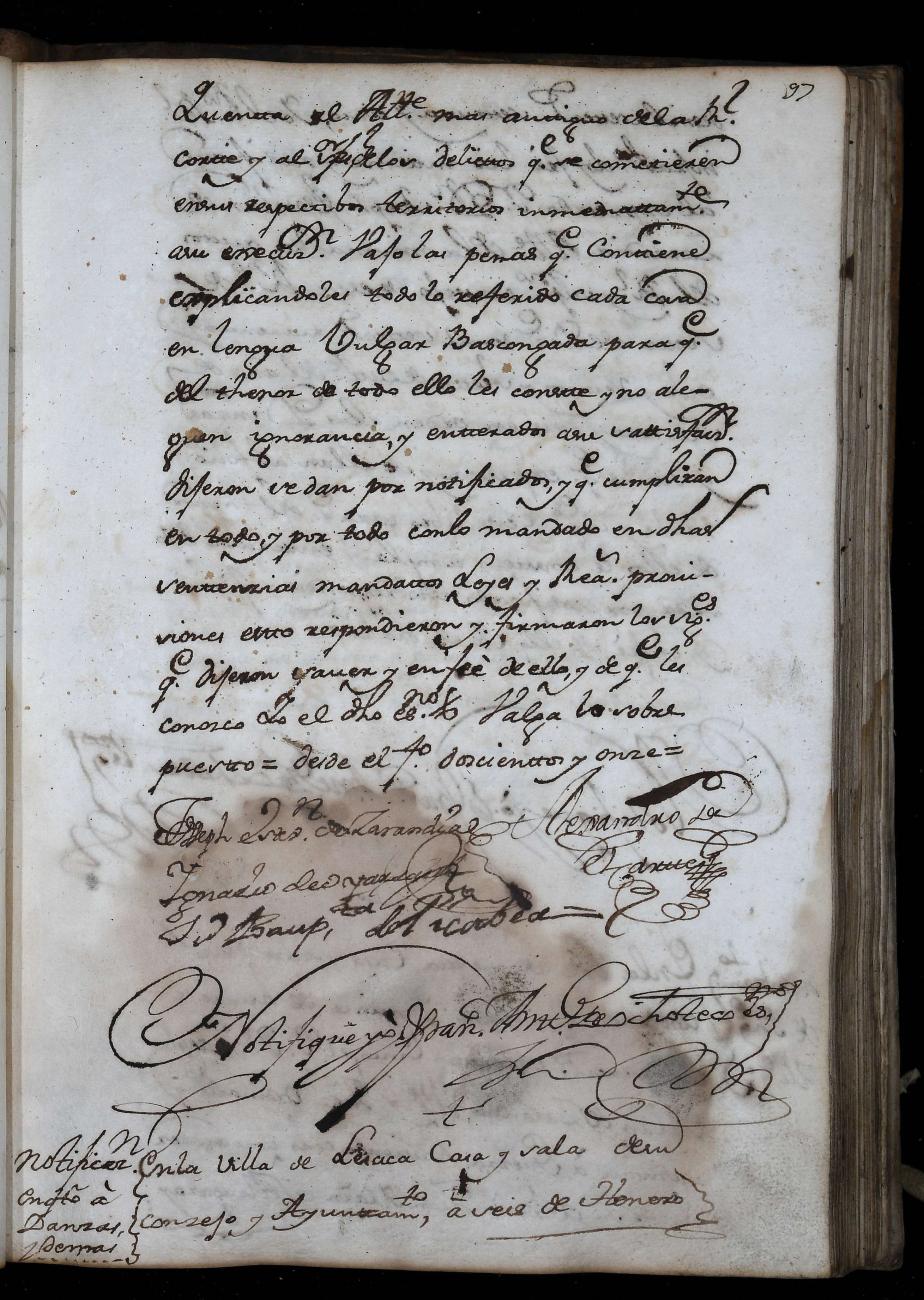 97
Quentta al Allᵉ. mas antiguo dela Rˡ.
cortte y al delos delictos q.ᵉ se comettieren
ensus respectibos territorios inmediattamᵗᵉ.
asu execuºⁿ. Vajo las penas q.ᵉ Contiene
explicandoles todo lo referido cada cosa
en lengua Vulgar Bascongada para q.ᵉ
del thenor de todo ello les constte y no ale-
guen ignorancia, y entterados asu sattisfacºⁿ.
dijeron se dan por notificados, y q.ᵉ cumpliran
en todo, y por todo conlo mandado en dhas
senttenzias mandattos Leyes y Reaˢ. provi-
siones estto respondieron y firmaron los
q.ᵉ dijeron saver y en feè de ello, y de q.ᵉ les
conosco Yo el dho esⁿᵒ. Valga lo sobre
puestto = desde el fº. doscienttos y onze =
Joseph de Zarandia
Alexandro de
Ignacio de
Jⁿ Baupᵗᵃ. de
Notifiquè yo Juan. esⁿᵒ.
Notificaºⁿ.
enqᵗᵒ à
Danzas,
y demas
Enla Villa de Lesaca Casa y sala desu
Conzejo y Ayunttamᵗᵒ, à seis de Henero